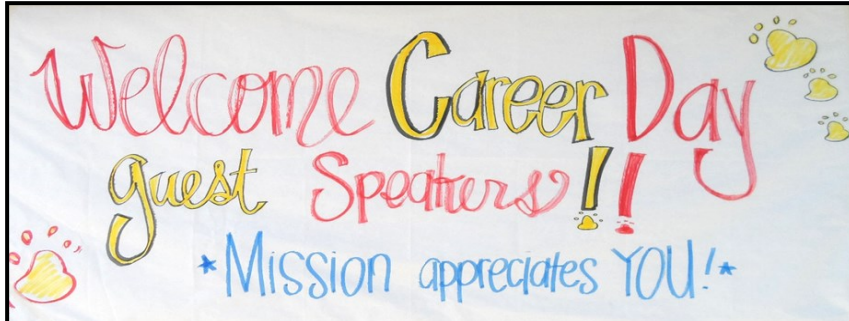 Welcome Career Day
guest Speakers!!
*Mission appreciates YOU!*